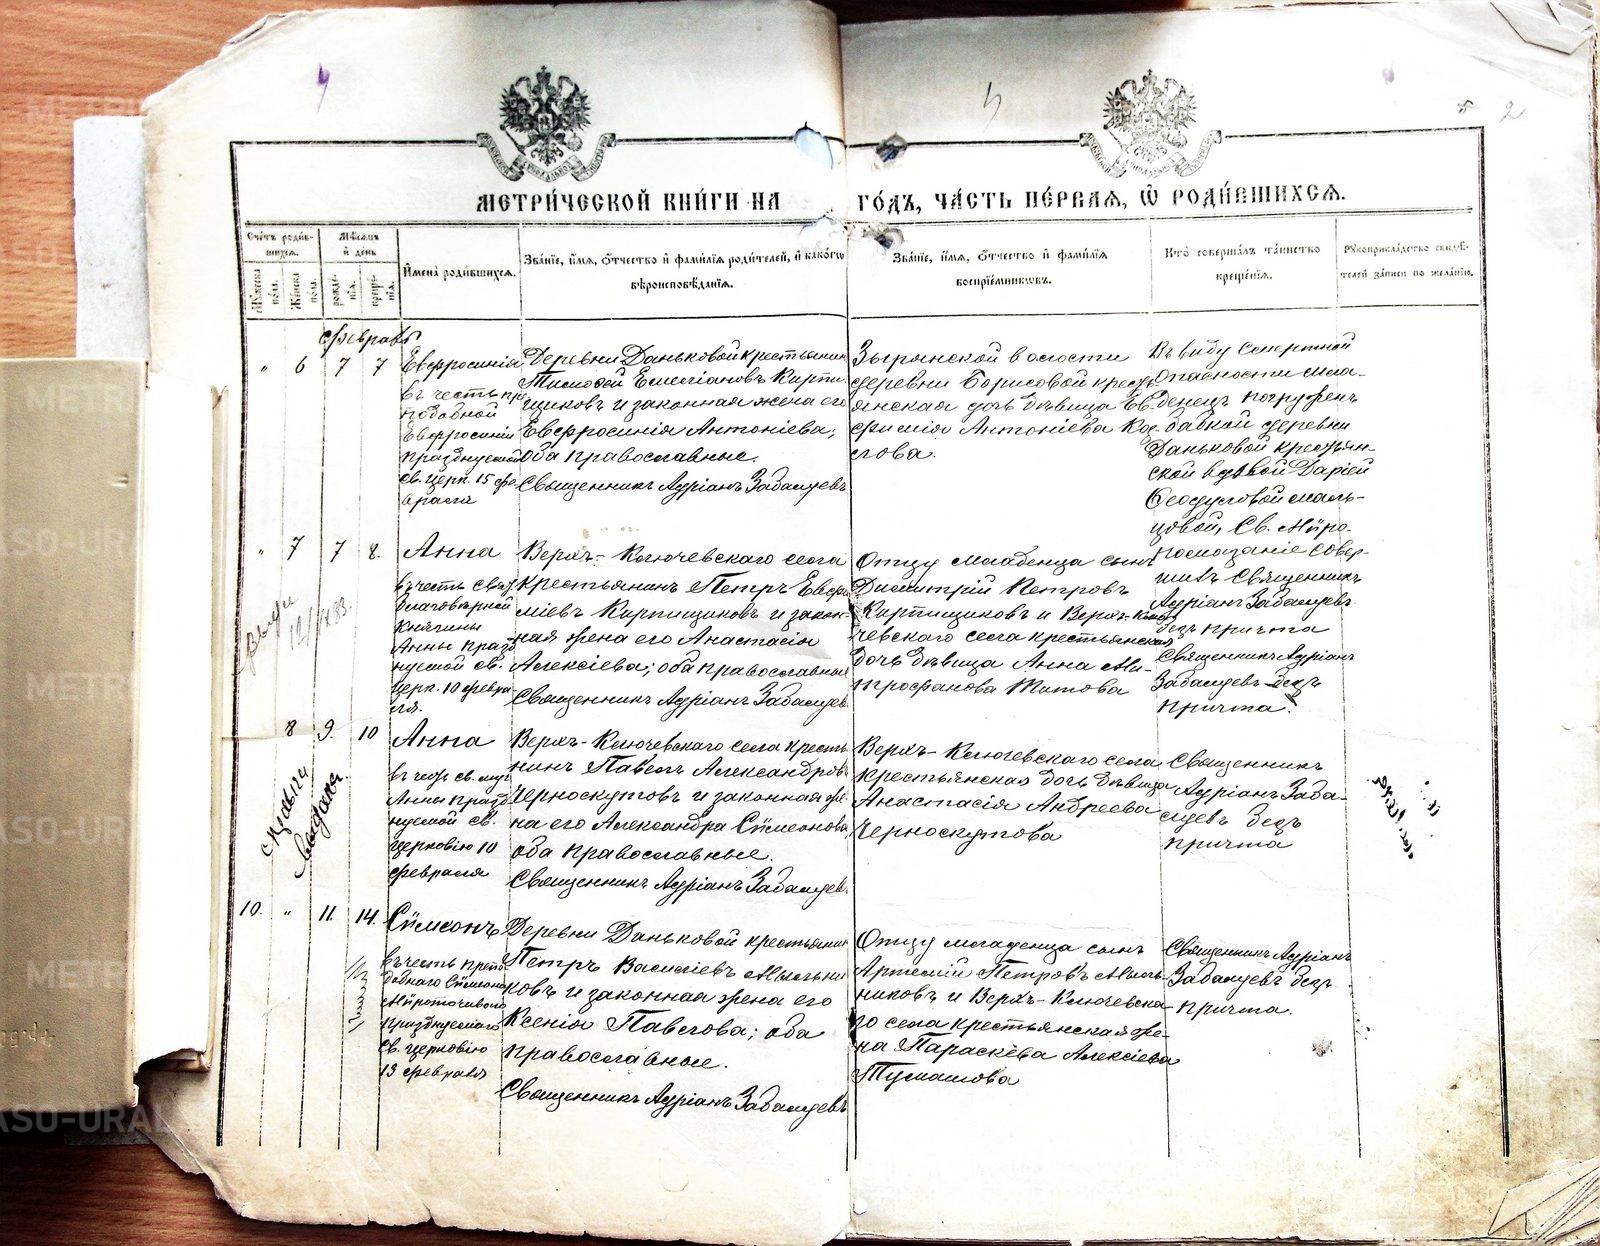 МЕТРИ́ЧЕСКОЙ КНИ́ГИ НА ГО́ДЪ, ЧА́СТЬ ПЕ́РВАЯ, Ѡ҆ РОДИ́ВШИХСЯ.
Сче́тъ роди́в-
шихся.
Му́жеска по́ла.
Же́нска по́ла.
Мѣ́сяцъ
и҆ де́нь
рожде́-
нїѧ.
креще́-
нїѧ.
И҆мена̀ роди́вшихся.
Зва́нїе, и҆́мя, ѻ҆́тчество и҆ фами́лїя роди́телей, и҆ како́гѡ
вѣроисповѣ́данїя.
Зва́нїе, и҆́мя, ѻ҆́тчество и҆ фами́лїя
воспрїе́мникѡвъ.
Кто̀ соверша́лъ та́инство
креще́нїя.
Рꙋкоприкла́дство свидѣ́-
телей за́писи по жела́нїю.
Февраль
" 6 7 7
Евфросинія
въ честь пре
подобной
Евфросиніи
празднуемой
св. церк. 15 фе
враля
Деревни Даньковой крестьянинъ
Тимофей Емеліановъ Кирпи-
щиковъ и законная жена его
Евфросинія Антоніева;
оба православные.
Священникъ Адріанъ Забалуевъ
Зырянской волости
деревни Борисовой кресть
янская дочь дѣвица Ев-
фимія Антоніева Кос-
лова.
Въ виду смертной
опасности мла-
денецъ погруженъ
бабкой деревни
Даньковой крестьян
ской вдовой Даріей
Ѳеодуловой маль-
цовой, Св. Мѵро-
помазаніе совер-
шилъ Священникъ
Адріанъ Забалуевъ
безъ причта
" 7 7 8.
Анна
въ честь свят
благовѣрной
Княгины
Анны празд
нуемой св.
церк. 10 февра
ля.
Верхъ-Ключевскаго села
крестьянинъ Петръ Евфи
міевъ Кирпищиковъ и закон-
ная жена его Анастасія
Алексіева; оба православные
Священникъ Адріанъ Забалуев
Отцу младенца сынъ
Димитрій Петровъ
Кирпищиковъ и Верхъ-Клю
чевскаго села крестьянская
дочь дѣвица Анна Ми-
трофанова Титова
Священникъ Адріанъ
Забалуевъ безъ
причта.
8 9. 10
Анна
въ честь св.
Анны празд
нуемой св.
церковію 10
февраля
Верхъ-Ключевскаго села кресть
нинъ Павелъ Александровъ
Черноскутовъ и законная же
на его Александра Сѵмеонова,
оба православные.
Священникъ Адріанъ Забалуев
Верхъ-Ключевскаго села
крестьянская дочь дѣвица
Анастасія Андреева
Черноскутова
Священникъ
Адріанъ Заба-
луевъ безъ
причта
10. " 11. 14.
Сѵмеонъ
въ честь препо
добнаго Сѵмеона
Мѵроточиваго
празднуемаго
св. церковію
13 февраля
Деревни Даньковой крестьянин
Петръ Василіевъ Мыльни
ковъ и законная жена его
Ксенія Павлова; оба
православные.
Священникъ Адріанъ Забалуевъ
Отцу младенца сынъ
Артемій Петровъ Мыль-
никовъ и Верхъ-Ключевска
го села крестьянская же-
на Параскева Алексіева
Тумашова
Священникъ Адріанъ
Забалуевъ безъ
причта.